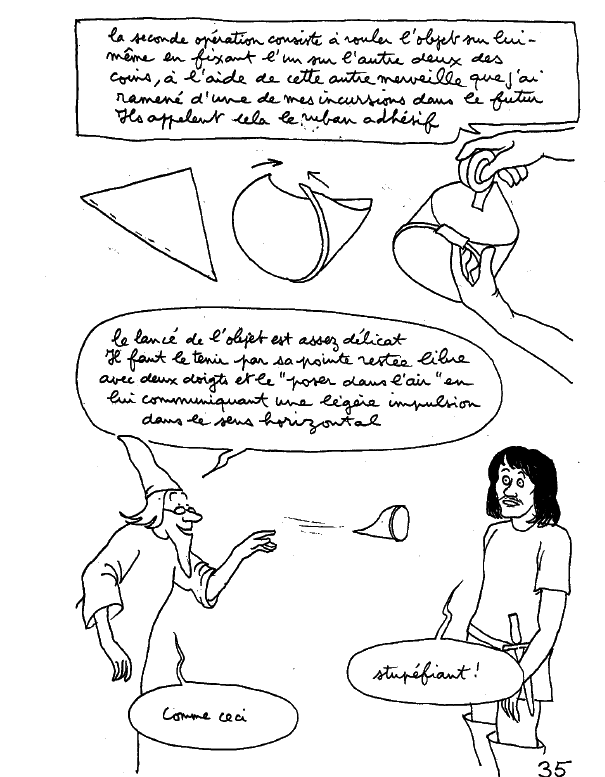 la seconde opération consiste à rouler l'objet sur lui-
même en fixant l'un sur l'autre deux des
coins, à l'aide de cette autre merveille que j'ai
ramené d'une de mes incursions dans le futur
Ils appelent cela le ruban adhésif
le lancé de l'objet est assez délicat
Il faut le tenir par sa pointe restée libre
avec deux doigts et le "poser dans l'air" en
lui communiquant une légère impulsion
dans le sens horizontal
stupéfiant !
Comme ceci
35